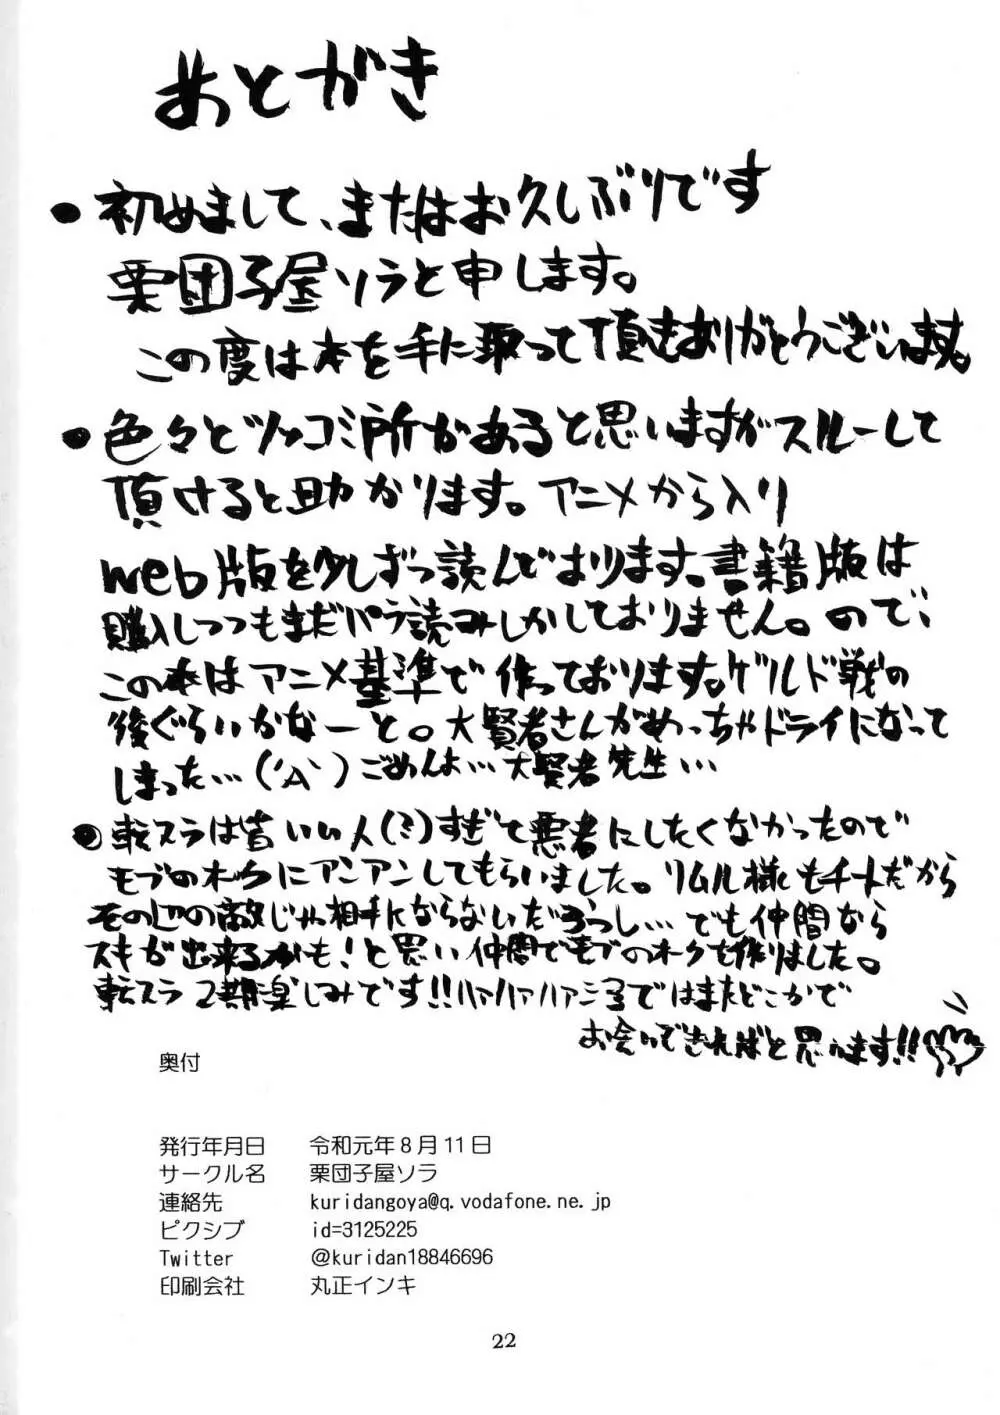 あとがき
・初めまして、またはお久しぶりです
栗団子屋ソラと申します。
この度は本を手に取って頂きありがとうございます。
・色々とツッコミ所があると思いますがスルーして
頂けると助かります。アニメから入り
web版を少しずつ読んでおります。書籍版は
購入しつつもまだパラ読みしかしておりません。ので、
この本はアニメ基準で作っております。ゲルド戦の
後ぐらいかなーと。大賢者さんがめっちゃドライになって
しまった…('A`)ごめんよ…大賢者先生…
・転スラは皆いい人(?)すぎて悪者にしたくなかったので
モブのオークにアンアンしてもらいました。リムル様もチートだから
その辺の敵じゃ相手にならないだろうし…でも仲間なら
スキが出来るかも!と思い仲間でモブのオークを作りました。
転スラ2期楽しみです!!ハァハァハァではまたどこかで
お会いできればと思います!!
奥付
発行年月日 令和元年8月11日
サークル名 栗団子屋ソラ
連絡先 kuridangoya@q.vodafone.ne.jp
ピクシブ id=3125225
Twitter @kuridan18846696
印刷会社 丸正インキ
22